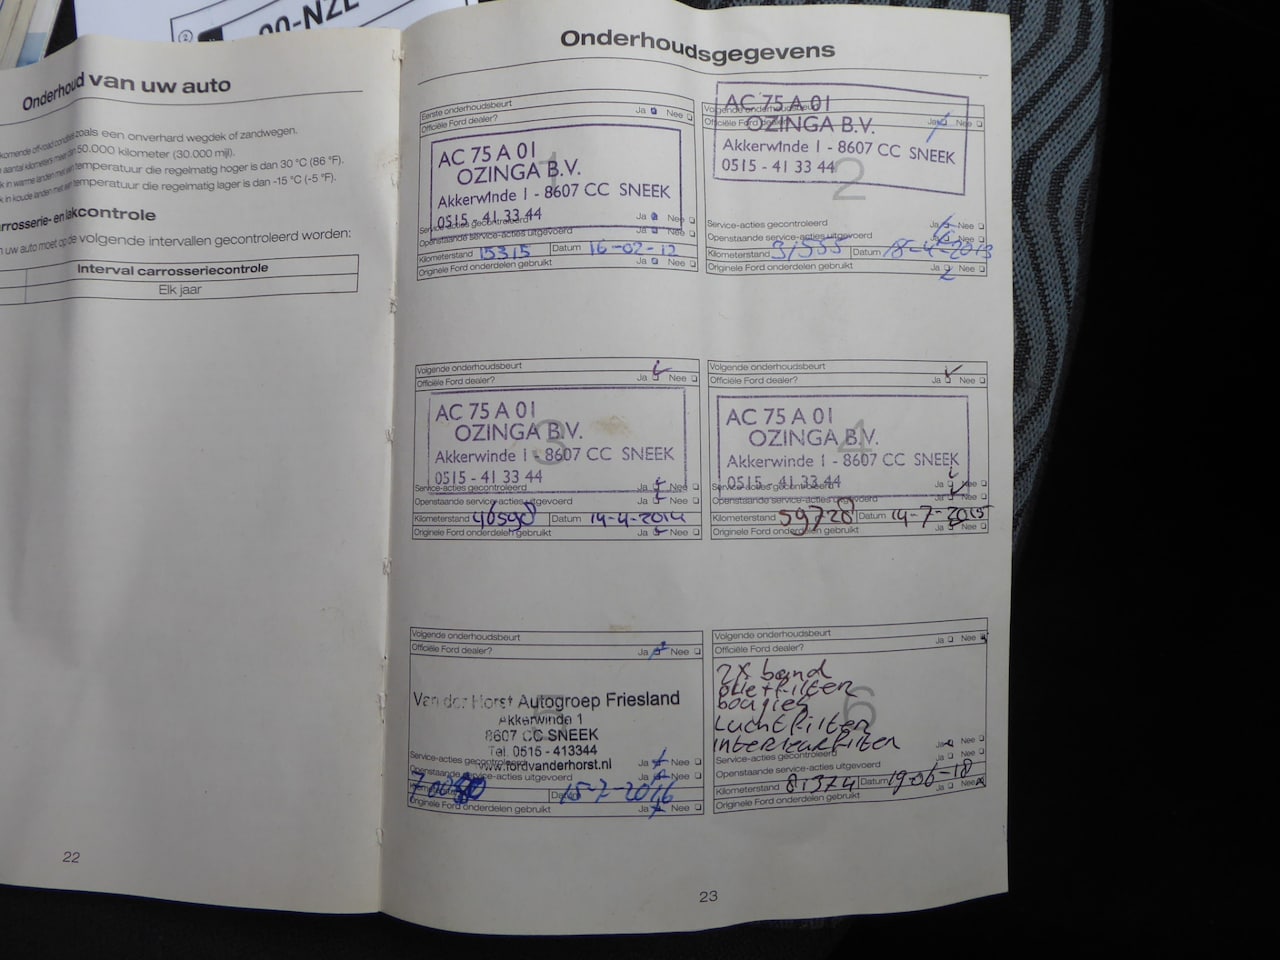 00-NZL
Onderhoud van uw auto
zoals een onverhard wegdek of zandwegen.
50.000 kilometer (30.000 mijl).
temperatuur die regelmatig hoger is dan 30 °C (86 °F).
temperatuur die regelmatig lager is dan -15 °C (-5 °F).
lakcontrole
uw auto moet op de volgende intervallen gecontroleerd worden:
Interval carrosseriecontrole
Elk jaar
22
Onderhoudsgegevens
Eerste onderhoudsbeurt
Officiële Ford dealer? Ja Nee
1
AC 75 A 01
OZINGA B.V.
Akkerwinde 1 - 8607 CC SNEEK
0515 - 41 33 44
Service-acties gecontroleerd Ja Nee
Openstaande service-acties uitgevoerd Ja Nee
Kilometerstand 15315 Datum 16-02-12
Originele Ford onderdelen gebruikt Ja Nee
Volgende onderhoudsbeurt
Officiële Ford dealer? Ja Nee
2
AC 75 A 01
OZINGA B.V.
Akkerwinde 1 - 8607 CC SNEEK
0515 - 41 33 44
Service-acties gecontroleerd Ja Nee
Openstaande service-acties uitgevoerd Ja Nee
Kilometerstand 31555 Datum 18-4-2013
Originele Ford onderdelen gebruikt Ja Nee
Volgende onderhoudsbeurt
Officiële Ford dealer? Ja Nee
3
AC 75 A 01
OZINGA B.V.
Akkerwinde 1 - 8607 CC SNEEK
0515 - 41 33 44
Service-acties gecontroleerd Ja Nee
Openstaande service-acties uitgevoerd Ja Nee
Kilometerstand 46598 Datum 14-4-2014
Originele Ford onderdelen gebruikt Ja Nee
Volgende onderhoudsbeurt
Officiële Ford dealer? Ja Nee
4
AC 75 A 01
OZINGA B.V.
Akkerwinde 1 - 8607 CC SNEEK
0515 - 41 33 44
Service-acties gecontroleerd Ja Nee
Openstaande service-acties uitgevoerd Ja Nee
Kilometerstand 59728 Datum 14-7-2015
Originele Ford onderdelen gebruikt Ja Nee
Volgende onderhoudsbeurt
Officiële Ford dealer? Ja Nee
5
Van der Horst Autogroep Friesland
Akkerwinde 1
8607 CC SNEEK
Tel. 0515 - 413344
www.fordvanderhorst.nl
Service-acties gecontroleerd Ja Nee
Openstaande service-acties uitgevoerd Ja Nee
15-7-2016
Originele Ford onderdelen gebruikt Ja Nee
Volgende onderhoudsbeurt
Officiële Ford dealer? Ja Nee
6
2x band
oliefilter
bougies
luchtfilter
interieurfilter
Service-acties gecontroleerd Ja Nee
Openstaande service-acties uitgevoerd Ja Nee
Kilometerstand 81374 Datum 19-06-18
Originele Ford onderdelen gebruikt Ja Nee
23